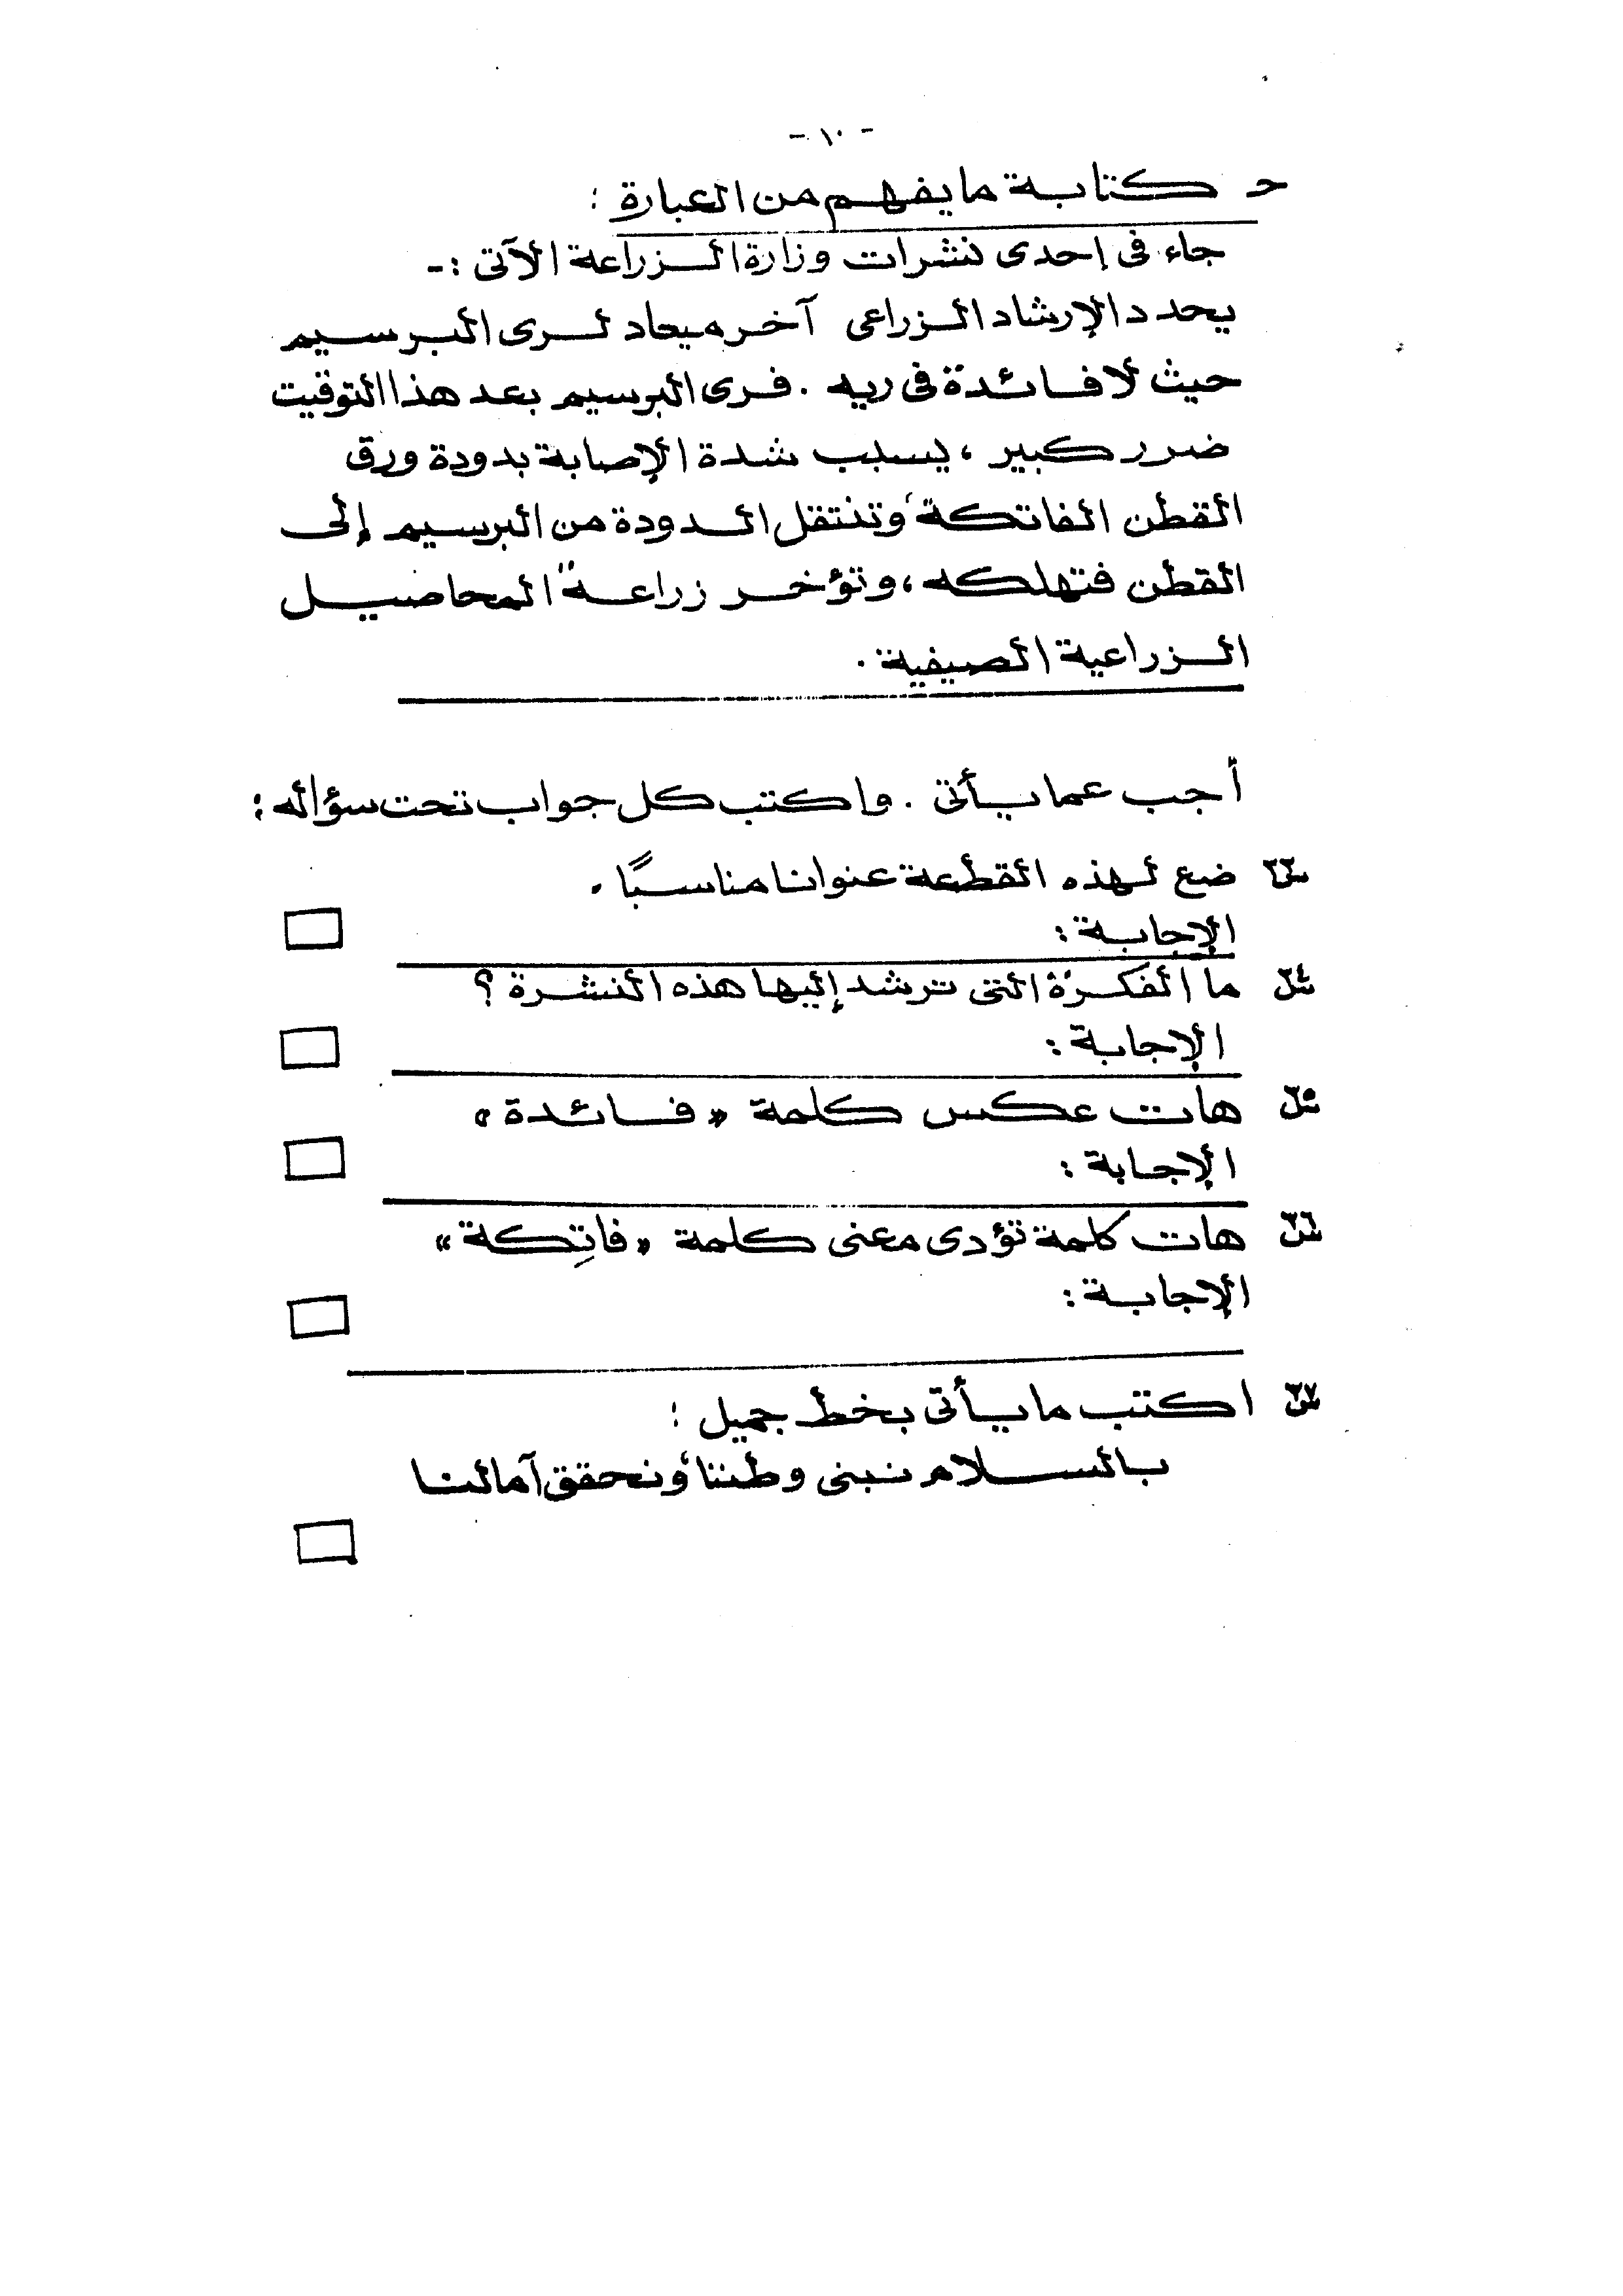 - ١٠ -
حـ كتابة ما يفهم من العبارة :
جاء فى إحدى نشرات وزارة الزراعة الآتى :-
يحدد الإرشاد الزراعى آخر ميعاد لرى البرسيم
حيث لا فائدة فى ريه . فرى البرسيم بعد هذا التوقيت
ضرر كبير ، يسبب شدة الإصابة بدودة ورق
القطن الفاتكة ، وتنتقل الدودة من البرسيم إلى
القطن فتهلكه ، وتؤخر زراعة المحاصيل
الزراعية الصيفية .
أجب عما يأتى . واكتب كل جواب تحت سؤاله :
س٢٣ ضع لهذه القطعة عنوانا مناسبًا .
الإجابة :
س٢٤ ما الفكرة التى ترشد إليها هذه النشرة ؟
الإجابة :
س٢٥ هات عكس كلمة « فائدة »
الإجابة :
س٢٦ هات كلمة تؤدى معنى كلمة « فاتِكة »
الإجابة :
س٢٧ اكتب ما يأتى بخط جميل :
بالسلام نبنى وطننا ونحقق آمالنا